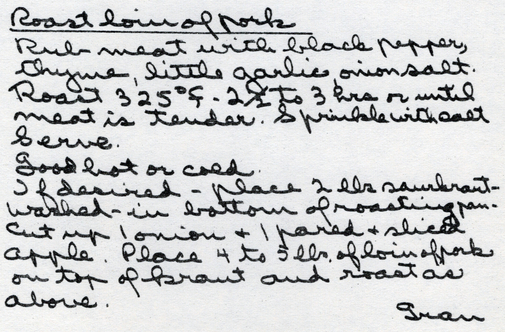 Roast loin of pork
Rub meat with black pepper,
thyme, little garlic onion salt.
Roast 325°F - 2½ to 3 hrs or until
meat is tender. Sprinkle with salt
Serve.
Good hot or cold.
If desired - place 2 lbs saurkraut-
washed - in bottom of roasting pan.
Cut up 1 onion + 1 pared + sliced
apple. Place 4 to 5 lbs. of loin of pork
on top of kraut and roast as
above.
Gran